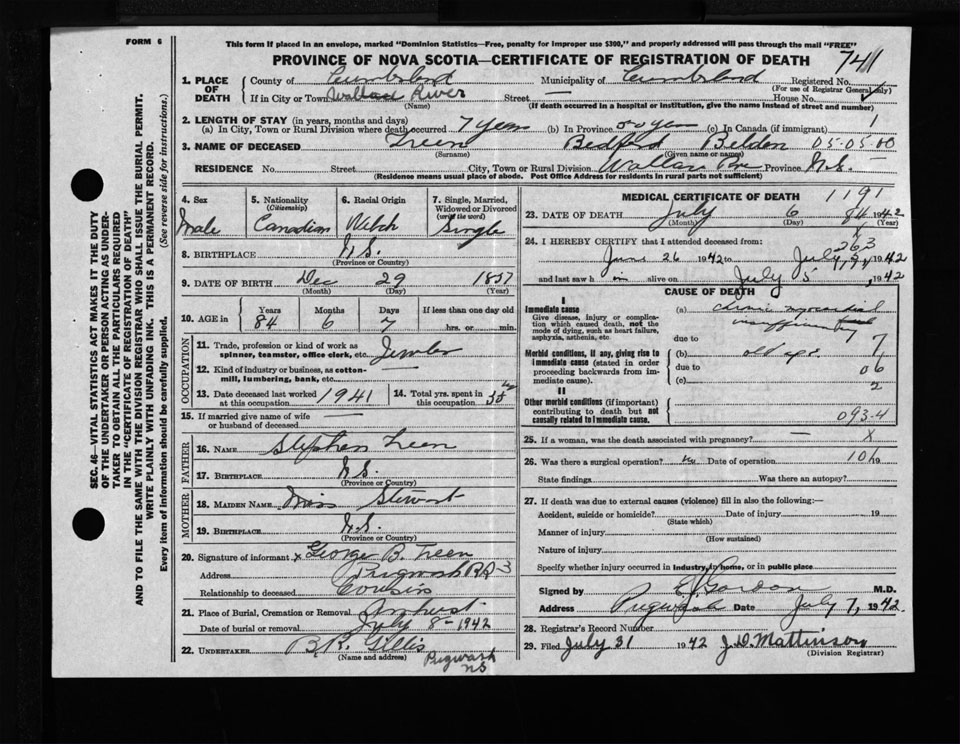 FORM 6
This form if placed in an envelope, marked "Dominion Statistics—Free, penalty for improper use $300," and properly addressed will pass through the mail "FREE"
PROVINCE OF NOVA SCOTIA—CERTIFICATE OF REGISTRATION OF DEATH 741
1. PLACE OF DEATH County of Cumberland Municipality of Cumberland Registered No.
(For use of Registrar General only)
If in City or Town Wallace River Street — House No.
(Name) (If death occurred in a hospital or institution, give the name instead of street and number)
2. LENGTH OF STAY (in years, months and days)
(a) In City, Town or Rural Division where death occurred 7 years (b) In Province 50 years (c) In Canada (if immigrant) 1
3. NAME OF DECEASED Treen Bedford Belden 05-05-00
(Surname) (Given name or names)
RESIDENCE No. Street City, Town or Rural Division Wallace Province N.S.
(Residence means usual place of abode. Post Office Address for residents in rural parts not sufficient)
4. Sex Male
5. Nationality (Citizenship) Canadian
6. Racial Origin Welch
7. Single, Married, Widowed or Divorced (write the word) Single
8. BIRTHPLACE N.S.
(Province or Country)
9. DATE OF BIRTH Dec 29 1857
(Month) (Day) (Year)
10. AGE in Years 84 Months 6 Days 7 If less than one day old hrs. or min.
OCCUPATION
11. Trade, profession or kind of work as spinner, teamster, office clerk, etc.
12. Kind of industry or business, as cotton-mill, lumbering, bank, etc. —
13. Date deceased last worked at this occupation 1941
14. Total yrs. spent in this occupation
15. If married give name of wife or husband of deceased —
FATHER
16. NAME Stephen Treen
17. BIRTHPLACE N.S.
(Province or Country)
MOTHER
18. MAIDEN NAME Miss Stewart
19. BIRTHPLACE N.S.
(Province or Country)
20. Signature of informant x George B. Treen
Address Pugwash RR 3
Relationship to deceased Cousin
21. Place of Burial, Cremation or Removal Amherst
Date of burial or removal July 8 - 1942
22. UNDERTAKER B.R. Gillis
(Name and address) Pugwash NS
MEDICAL CERTIFICATE OF DEATH 1191
23. DATE OF DEATH July 6 84 1942
(Month) (Day) (Year)
24. I HEREBY CERTIFY that I attended deceased from:
June 26 1942 to July 1942
and last saw h im alive on July 5, 1942
263
CAUSE OF DEATH
I
Immediate cause
Give disease, injury or complication which caused death, not the mode of dying, such as heart failure, asphyxia, asthenia, etc.
(a) chronic myocardial
due to
Morbid conditions, if any, giving rise to immediate cause (stated in order proceeding backwards from immediate cause).
(b) old age
due to
(c)
7
06
2
II
Other morbid conditions (if important) contributing to death but not causally related to immediate cause.
093-4
25. If a woman, was the death associated with pregnancy? — X
26. Was there a surgical operation? no Date of operation
State findings Was there an autopsy?
27. If death was due to external causes (violence) fill in also the following:—
Accident, suicide or homicide? Date of injury 19
(State which)
Manner of injury
(How sustained)
Nature of injury
Specify whether injury occurred in industry, in home, or in public place
Signed by E. Gordon M.D.
Address Pugwash Date July 7, 1942.
28. Registrar's Record Number
29. Filed July 31 1942 J.D. Mattinson
(Division Registrar)
SEC. 46—VITAL STATISTICS ACT MAKES IT THE DUTY
OF THE UNDERTAKER OR PERSON ACTING AS UNDER-
TAKER TO OBTAIN ALL THE PARTICULARS REQUIRED
IN THE "CERTIFICATE OF REGISTRATION OF DEATH"
AND TO FILE THE SAME WITH THE DIVISION REGISTRAR WHO SHALL ISSUE THE BURIAL PERMIT.
WRITE PLAINLY WITH UNFADING INK. THIS IS A PERMANENT RECORD.
Every item of information should be carefully supplied. (See reverse side for instructions.)